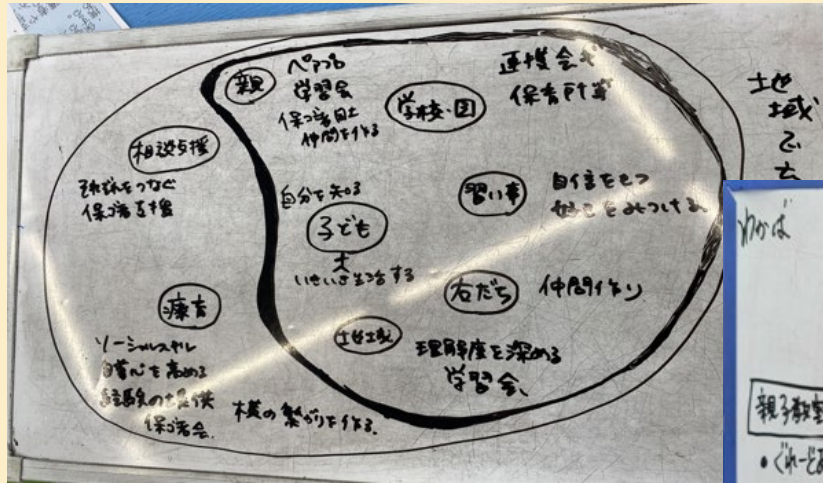 親
ペアプロ
学習会
保ゴ者同士
仲間を作る
学校・園
連携会ギ
保育所等
地
域
で
相談支援
それぞれをつなぐ
保ゴ者支援
自分を知る
子ども
いきいき生活する
習い事
自信をもつ
好きをみつける
友だち
仲間作り
地域
理解度を深める
学習会
療育
ソーシャルスキル
自尊心を高める
経験の提供
保ゴ者会
横の繋がりを作る
わかば
親子教室